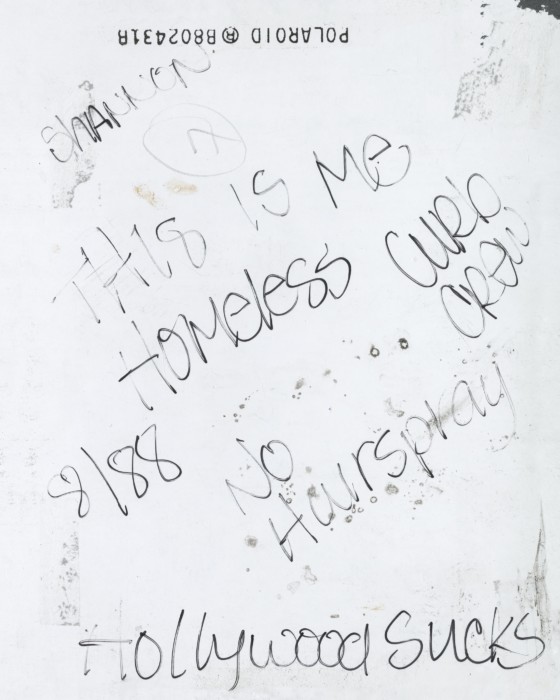 POLAROID ® B8024318
SHANNON
7
THIS IS ME
HOMELESS
CURB
CREW
8/88
NO
Hairspray
Hollywood SUCKS